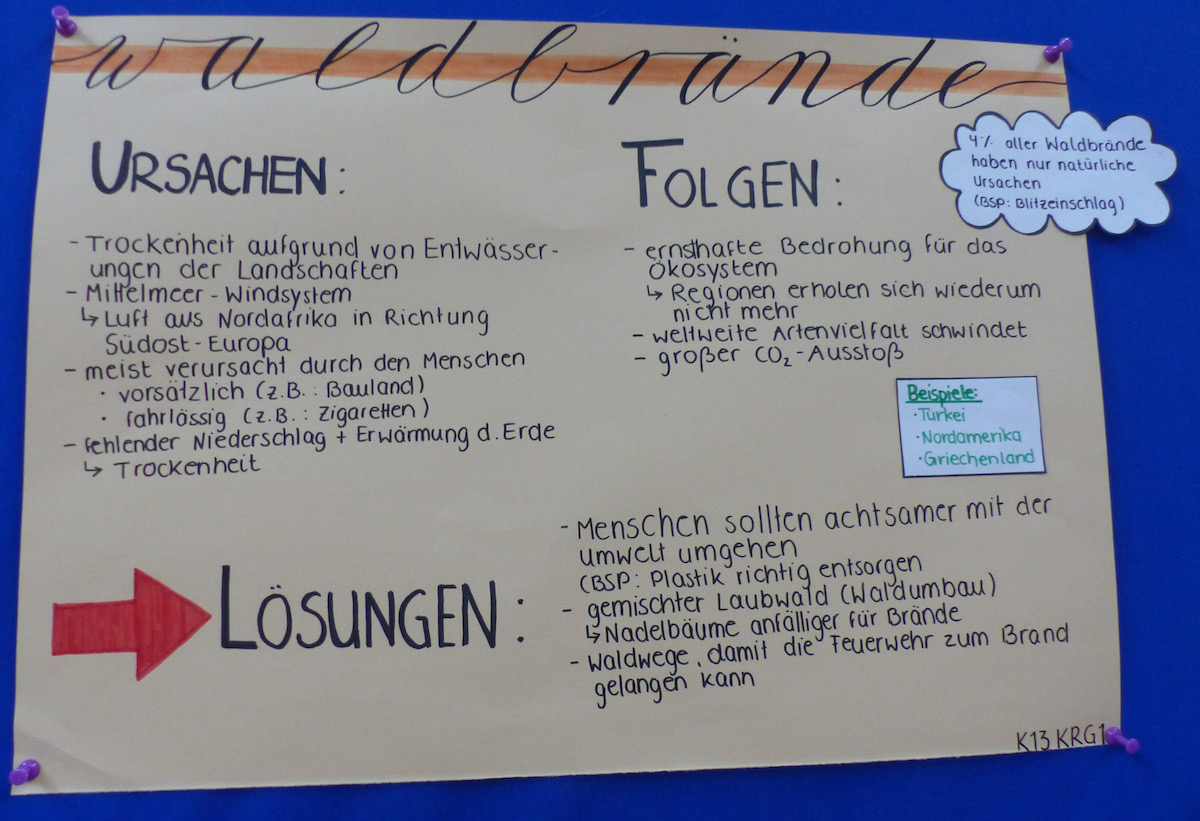 waldbrände
URSACHEN:
- Trockenheit aufgrund von Entwässer-
ungen der Landschaften
- Mittelmeer-Windsystem
↳ Luft aus Nordafrika in Richtung
Südost-Europa
- meist verursacht durch den Menschen
· vorsätzlich (z.B.: Bauland)
· fahrlässig (z.B.: Zigaretten)
- fehlender Niederschlag + Erwärmung d. Erde
↳ Trockenheit
FOLGEN:
- ernsthafte Bedrohung für das
Ökosystem
↳ Regionen erholen sich wiederum
nicht mehr
- weltweite Artenvielfalt schwindet
- großer CO₂-Ausstoß
4% aller Waldbrände
haben nur natürliche
Ursachen
(BSP: Blitzeinschlag)
Beispiele:
· Türkei
· Nordamerika
· Griechenland
LÖSUNGEN:
- Menschen sollten achtsamer mit der
umwelt umgehen
(BSP: Plastik richtig entsorgen
- gemischter Laubwald (Waldumbau)
↳ Nadelbäume anfälliger für Brände
- Waldwege, damit die Feuerwehr zum Brand
gelangen kann
K13 KRG1